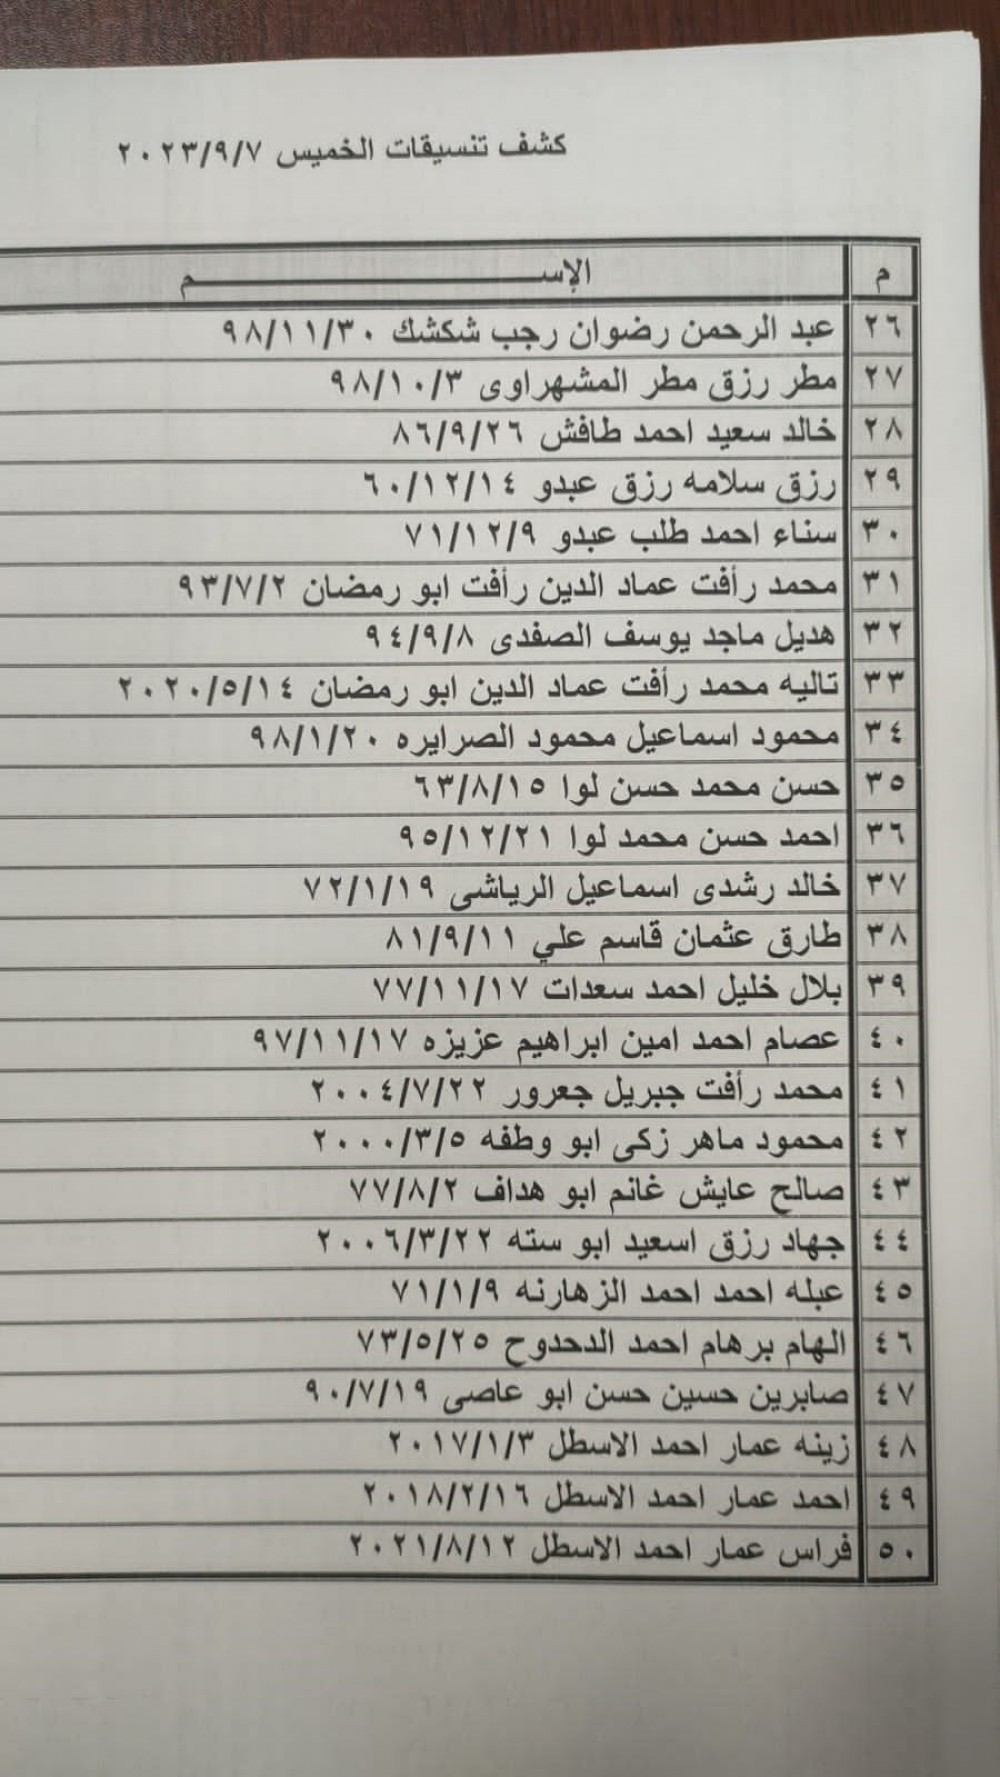 كشف تنسيقات الخميس ٢٠٢٣/٩/٧
م الإســـــــــــــم
٢٦ عبد الرحمن رضوان رجب شكشك ٩٨/١١/٣٠
٢٧ مطر رزق مطر المشهراوى ٩٨/١٠/٣
٢٨ خالد سعيد احمد طافش ٨٦/٩/٢٦
٢٩ رزق سلامه رزق عبدو ٦٠/١٢/١٤
٣٠ سناء احمد طلب عبدو ٧١/١٢/٩
٣١ محمد رأفت عماد الدين رأفت ابو رمضان ٩٣/٧/٢
٣٢ هديل ماجد يوسف الصفدى ٩٤/٩/٨
٣٣ تاليه محمد رأفت عماد الدين ابو رمضان ٢٠٢٠/٥/١٤
٣٤ محمود اسماعيل محمود الصرايره ٩٨/١/٢٠
٣٥ حسن محمد حسن لوا ٦٣/٨/١٥
٣٦ احمد حسن محمد لوا ٩٥/١٢/٢١
٣٧ خالد رشدى اسماعيل الرياشى ٧٢/١/١٩
٣٨ طارق عثمان قاسم علي ٨١/٩/١١
٣٩ بلال خليل احمد سعدات ٧٧/١١/١٧
٤٠ عصام احمد امين ابراهيم عزيزه ٩٧/١١/١٧
٤١ محمد رأفت جبريل جعرور ٢٠٠٤/٧/٢٢
٤٢ محمود ماهر زكى ابو وطفه ٢٠٠٠/٣/٥
٤٣ صالح عايش غانم ابو هداف ٧٧/٨/٢
٤٤ جهاد رزق اسعيد ابو سته ٢٠٠٦/٣/٢٢
٤٥ عبله احمد احمد الزهارنه ٧١/١/٩
٤٦ الهام برهام احمد الدحدوح ٧٣/٥/٢٥
٤٧ صابرين حسين حسن ابو عاصى ٩٠/٧/١٩
٤٨ زينه عمار احمد الاسطل ٢٠١٧/١/٣
٤٩ احمد عمار احمد الاسطل ٢٠١٨/٢/١٦
٥٠ فراس عمار احمد الاسطل ٢٠٢١/٨/١٢